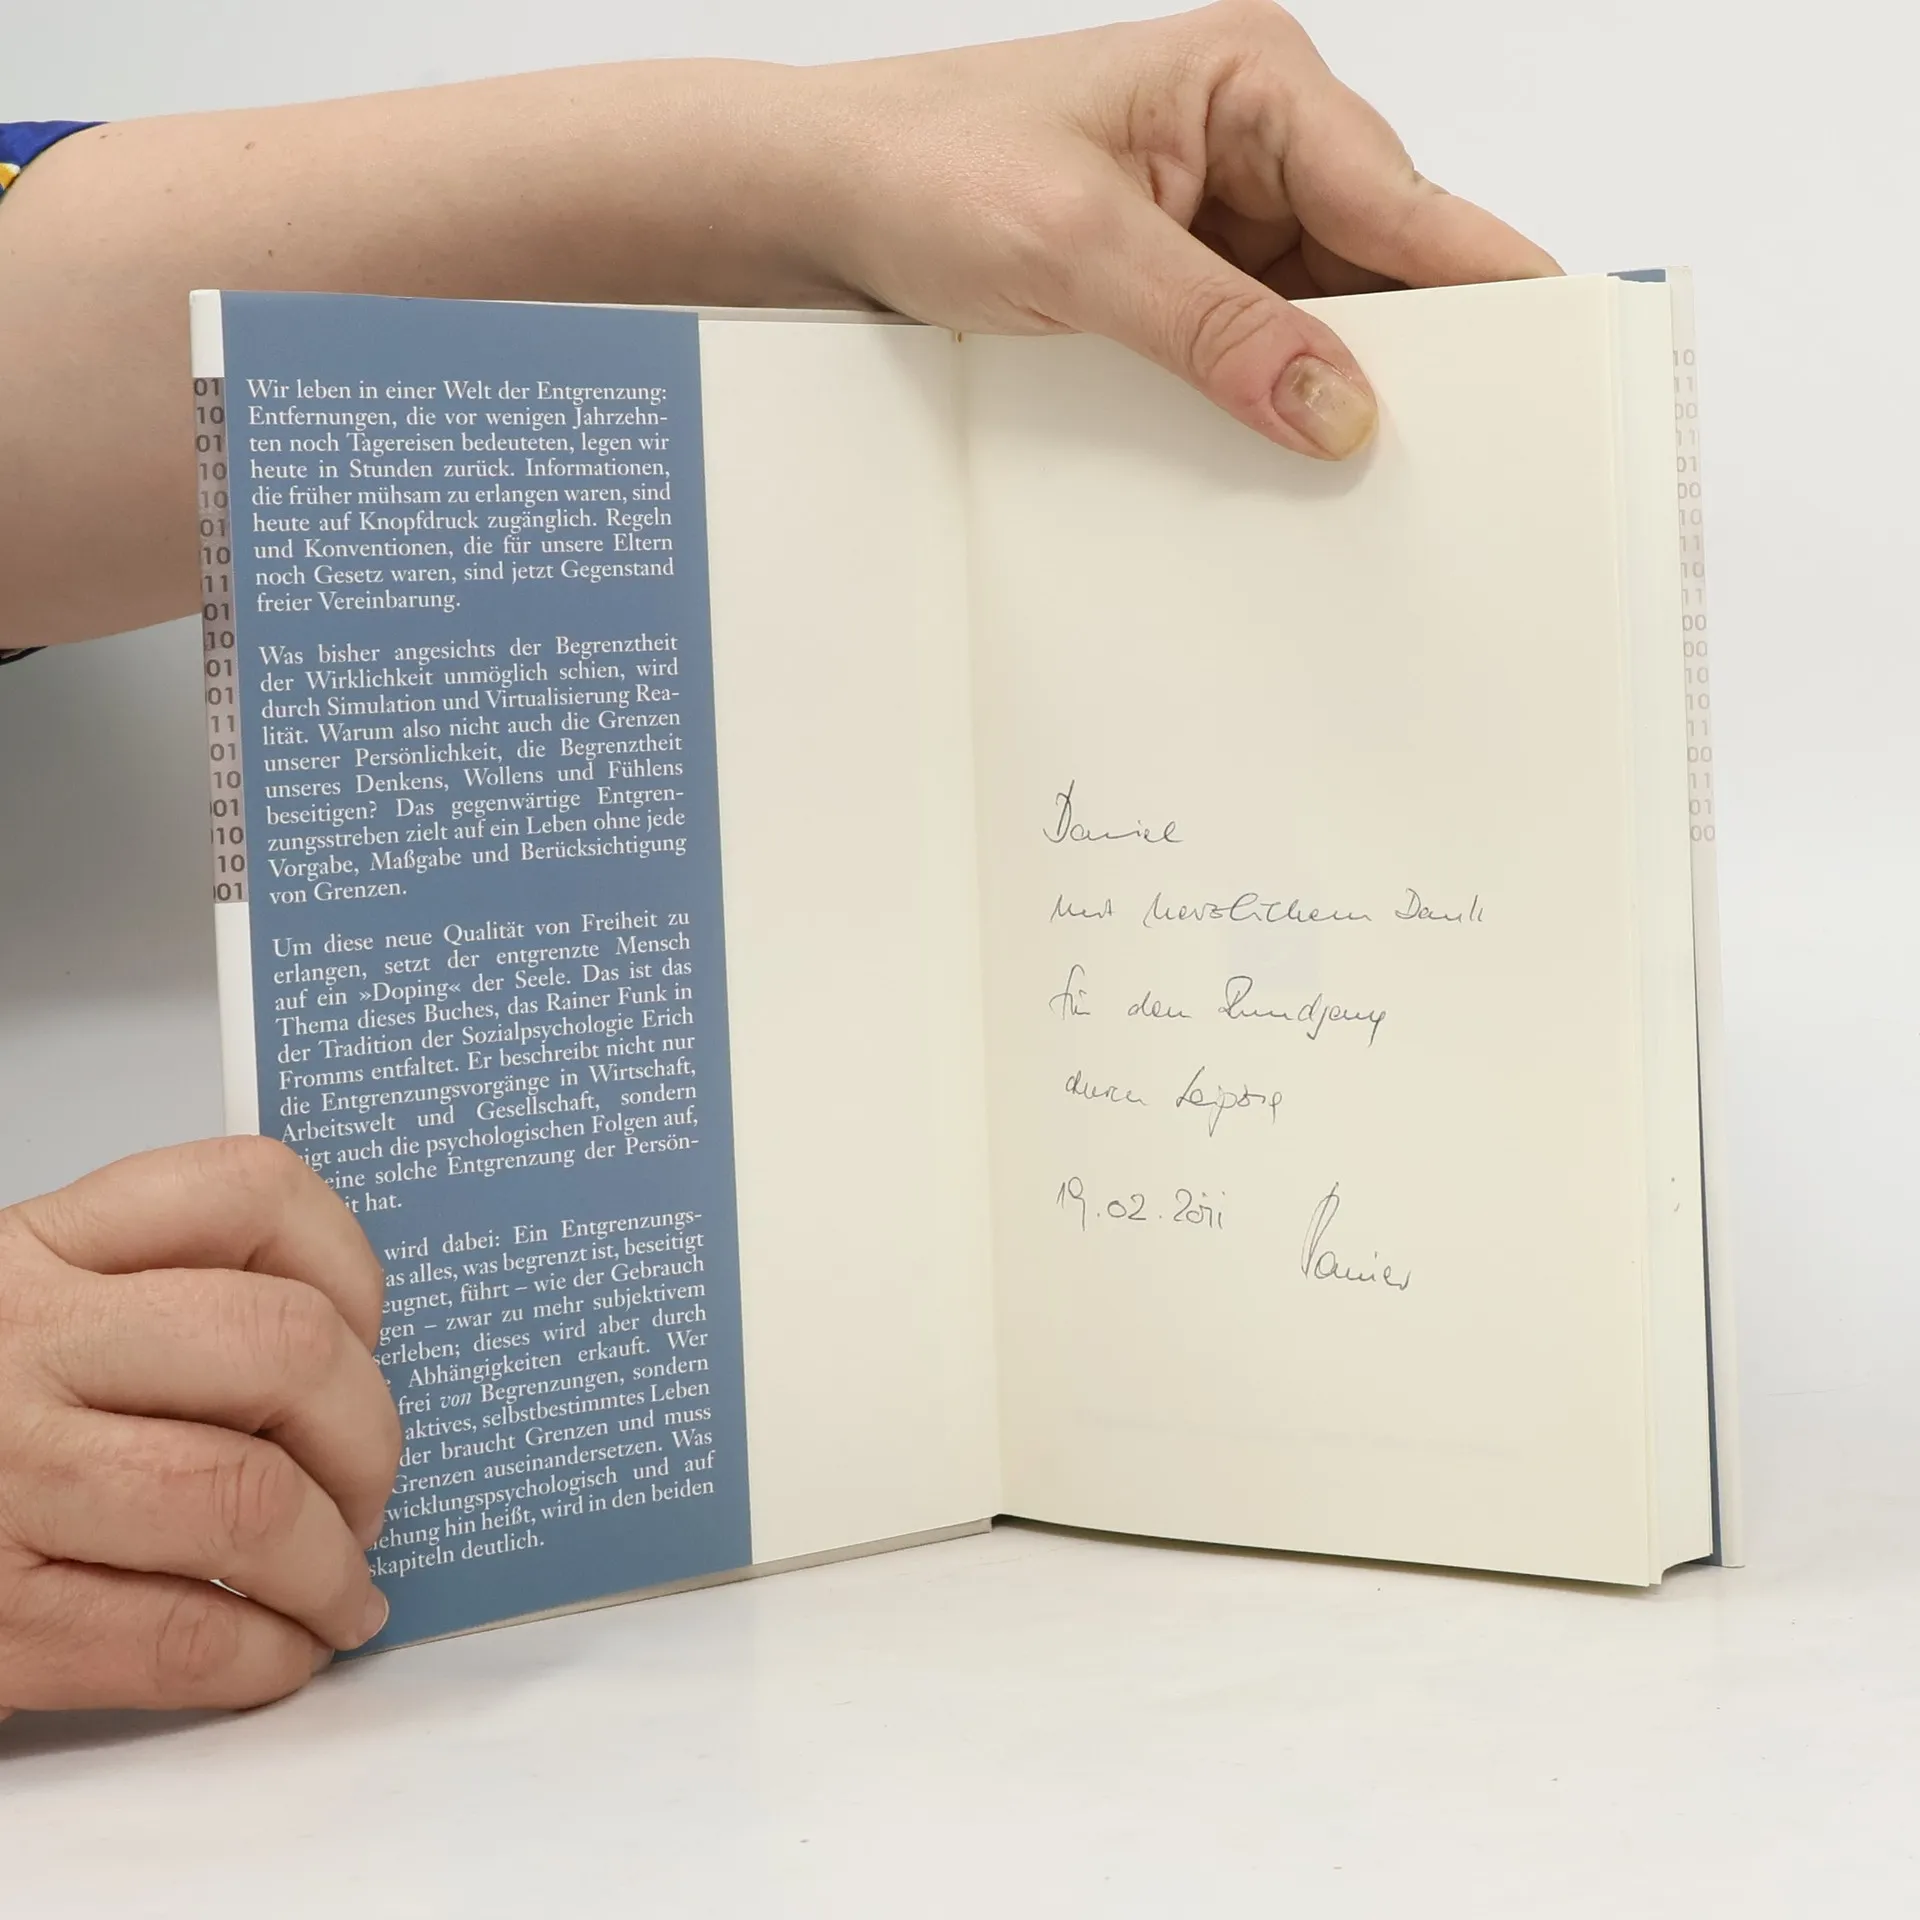 Wir leben in einer Welt der Entgrenzung:
Entfernungen, die vor wenigen Jahrzehn-
ten noch Tagereisen bedeuteten, legen wir
heute in Stunden zurück. Informationen,
die früher mühsam zu erlangen waren, sind
heute auf Knopfdruck zugänglich. Regeln
und Konventionen, die für unsere Eltern
noch Gesetz waren, sind jetzt Gegenstand
freier Vereinbarung.
Was bisher angesichts der Begrenztheit
der Wirklichkeit unmöglich schien, wird
durch Simulation und Virtualisierung Rea-
lität. Warum also nicht auch die Grenzen
unserer Persönlichkeit, die Begrenztheit
unseres Denkens, Wollens und Fühlens
beseitigen? Das gegenwärtige Entgren-
zungsstreben zielt auf ein Leben ohne jede
Vorgabe, Maßgabe und Berücksichtigung
von Grenzen.
Um diese neue Qualität von Freiheit zu
erlangen, setzt der entgrenzte Mensch
auf ein »Doping« der Seele. Das ist das
Thema dieses Buches, das Rainer Funk in
der Tradition der Sozialpsychologie Erich
Fromms entfaltet. Er beschreibt nicht nur
die Entgrenzungsvorgänge in Wirtschaft,
Arbeitswelt und Gesellschaft, sondern
igt auch die psychologischen Folgen auf,
eine solche Entgrenzung der Persön-
it hat.
wird dabei: Ein Entgrenzungs-
as alles, was begrenzt ist, beseitigt
eugnet, führt – wie der Gebrauch
gen – zwar zu mehr subjektivem
serleben; dieses wird aber durch
Abhängigkeiten erkauft. Wer
frei von Begrenzungen, sondern
aktives, selbstbestimmtes Leben
der braucht Grenzen und muss
Grenzen auseinandersetzen. Was
wicklungspsychologisch und auf
iehung hin heißt, wird in den beiden
skapiteln deutlich.
Daniel
mit herzlichem Dank
für den Rundgang
durch Leipzig
19.02.2011
Rainer
01
10
01
10
10
01
10
11
01
10
01
01
11
01
10
01
10
10
01
10
11
00
11
01
00
10
11
10
11
00
00
10
10
11
00
11
01
00